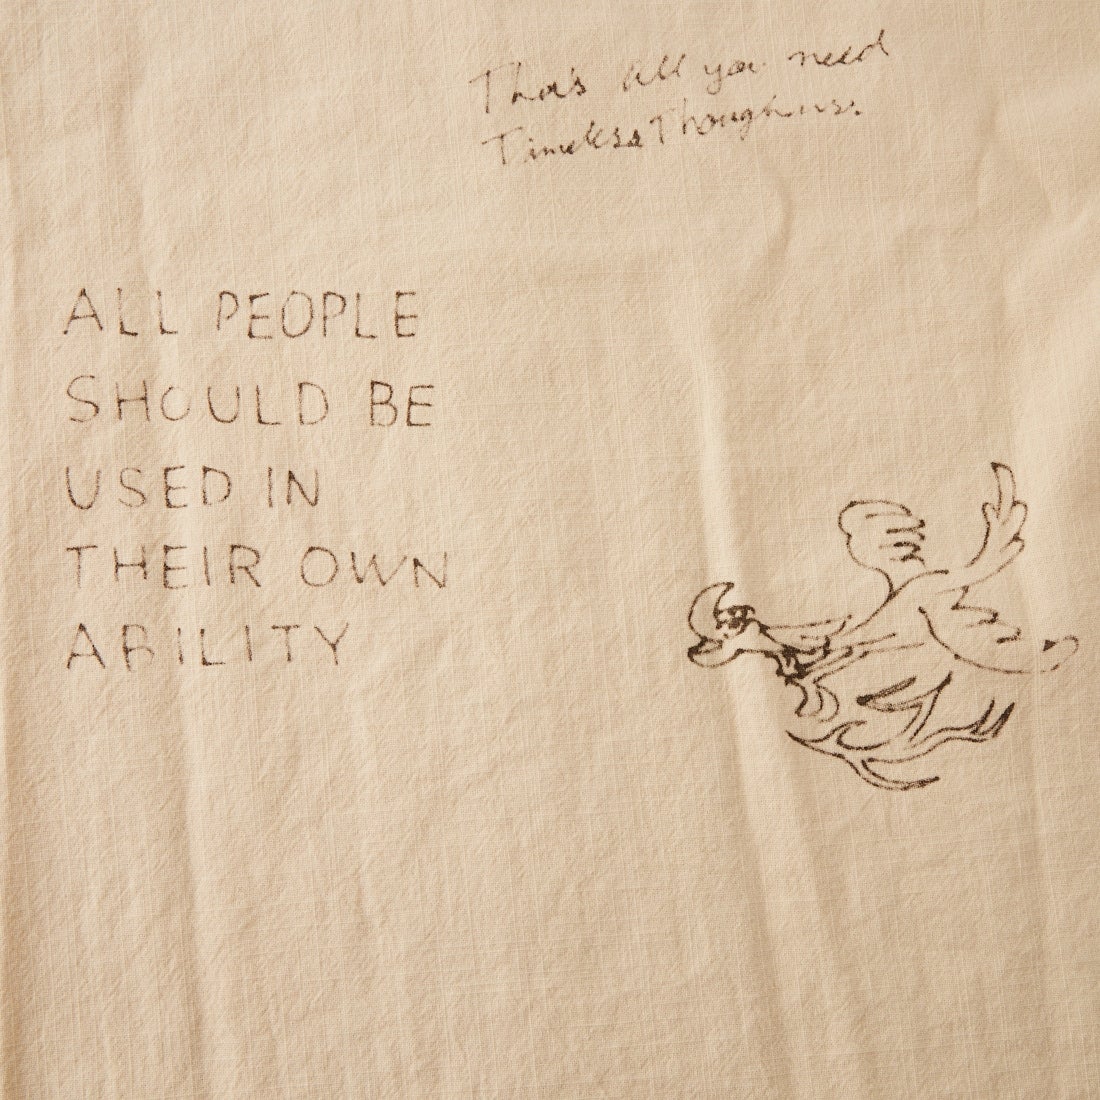 Thats all you need
Timeless Thoughtus.
ALL PEOPLE
SHOULD BE
USED IN
THEIR OWN
ABILITY